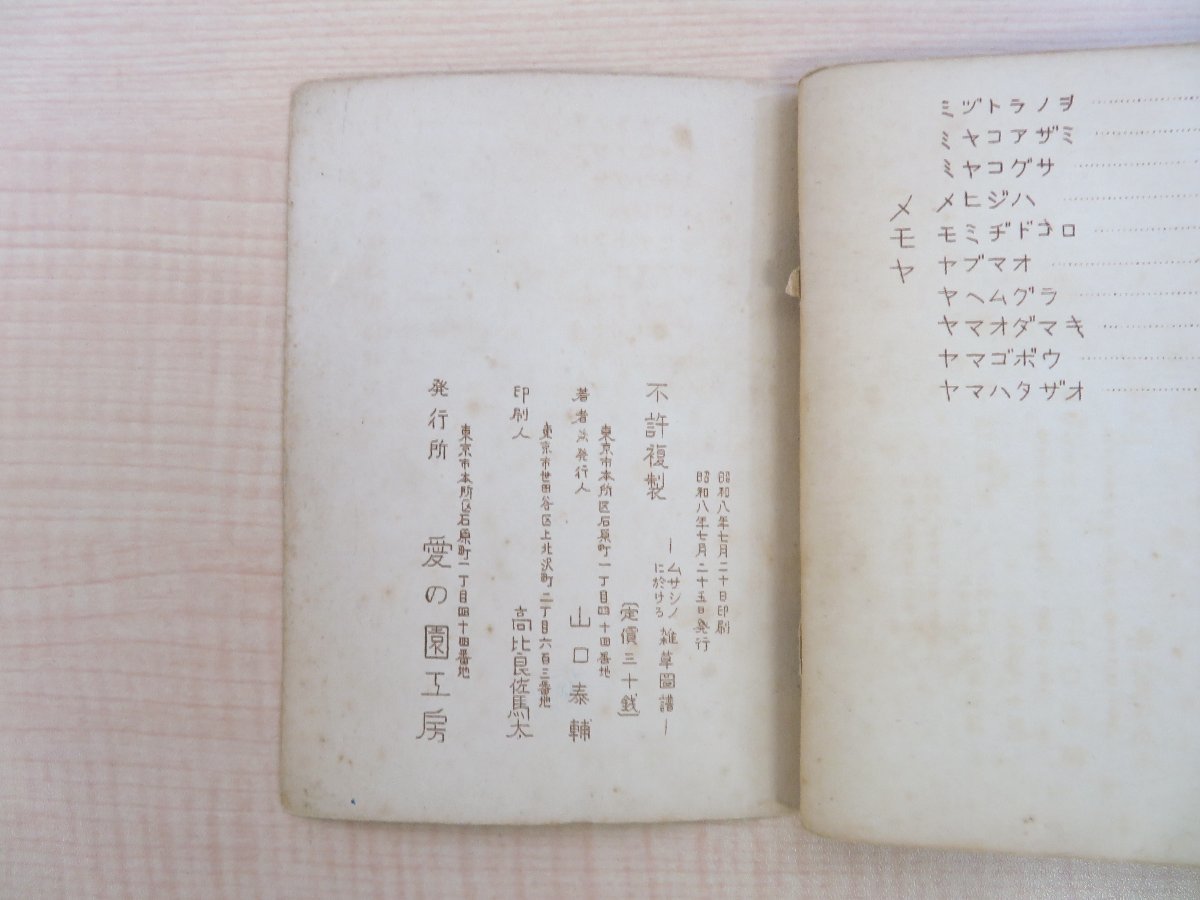 昭和八年七月二十日印刷
昭和八年七月二十五日発行
―ムサシノに於ける 雑草圖譜―
不許複製
(定價三十銭)
東京市本所区石原町一丁目四十四番地
著者兼発行人 山口泰輔
東京市世田谷区上北沢町二丁目六百三番地
印刷人 高比良佐馬太
東京市本所区石原町一丁目四十四番地
発行所 愛の園工房
ミヅトラノヲ
ミヤコアザミ
ミヤコグサ
メ メヒジハ
モ モミヂドコロ
ヤ ヤブマオ
ヤヘムグラ
ヤマオダマキ
ヤマゴボウ
ヤマハタザオ